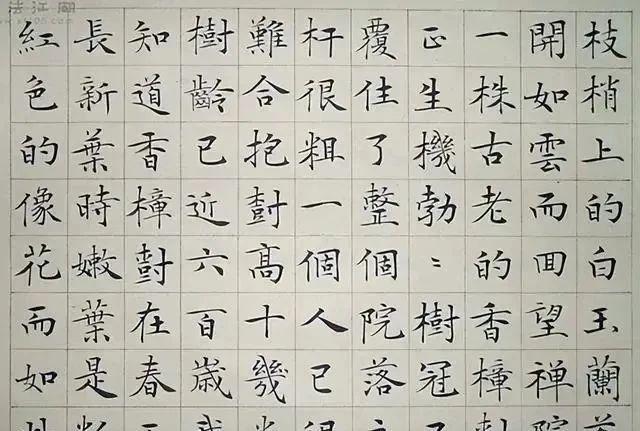 枝梢上的白玉蘭
開如雲而回望禅
一株古老的香樟
正生機勃〻樹冠
覆住了整個院落
杆很粗一個人已
難合抱樹高十幾
樹齡已近六百歲
知道香樟樹在春
長新葉時嫩葉是
紅色的像花而如